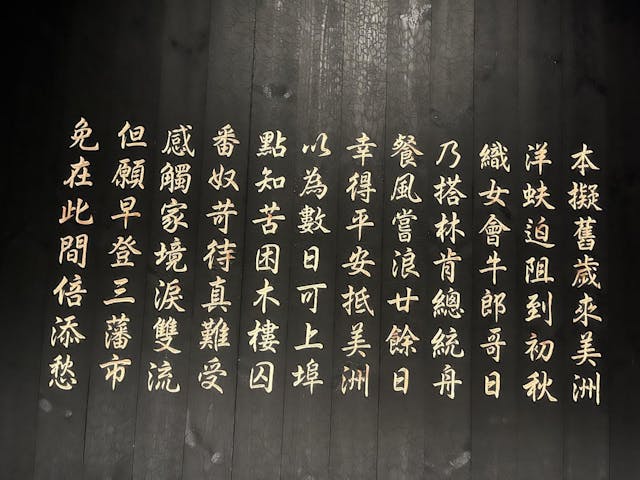 本擬舊歲來美洲
洋蚨迫阻到初秋
織女會牛郎哥日
乃搭林肯總統舟
餐風嘗浪廿餘日
幸得平安抵美洲
以為數日可上埠
點知苦困木樓囚
番奴苛待真難受
感觸家境淚雙流
但願早登三藩市
免在此間倍添愁